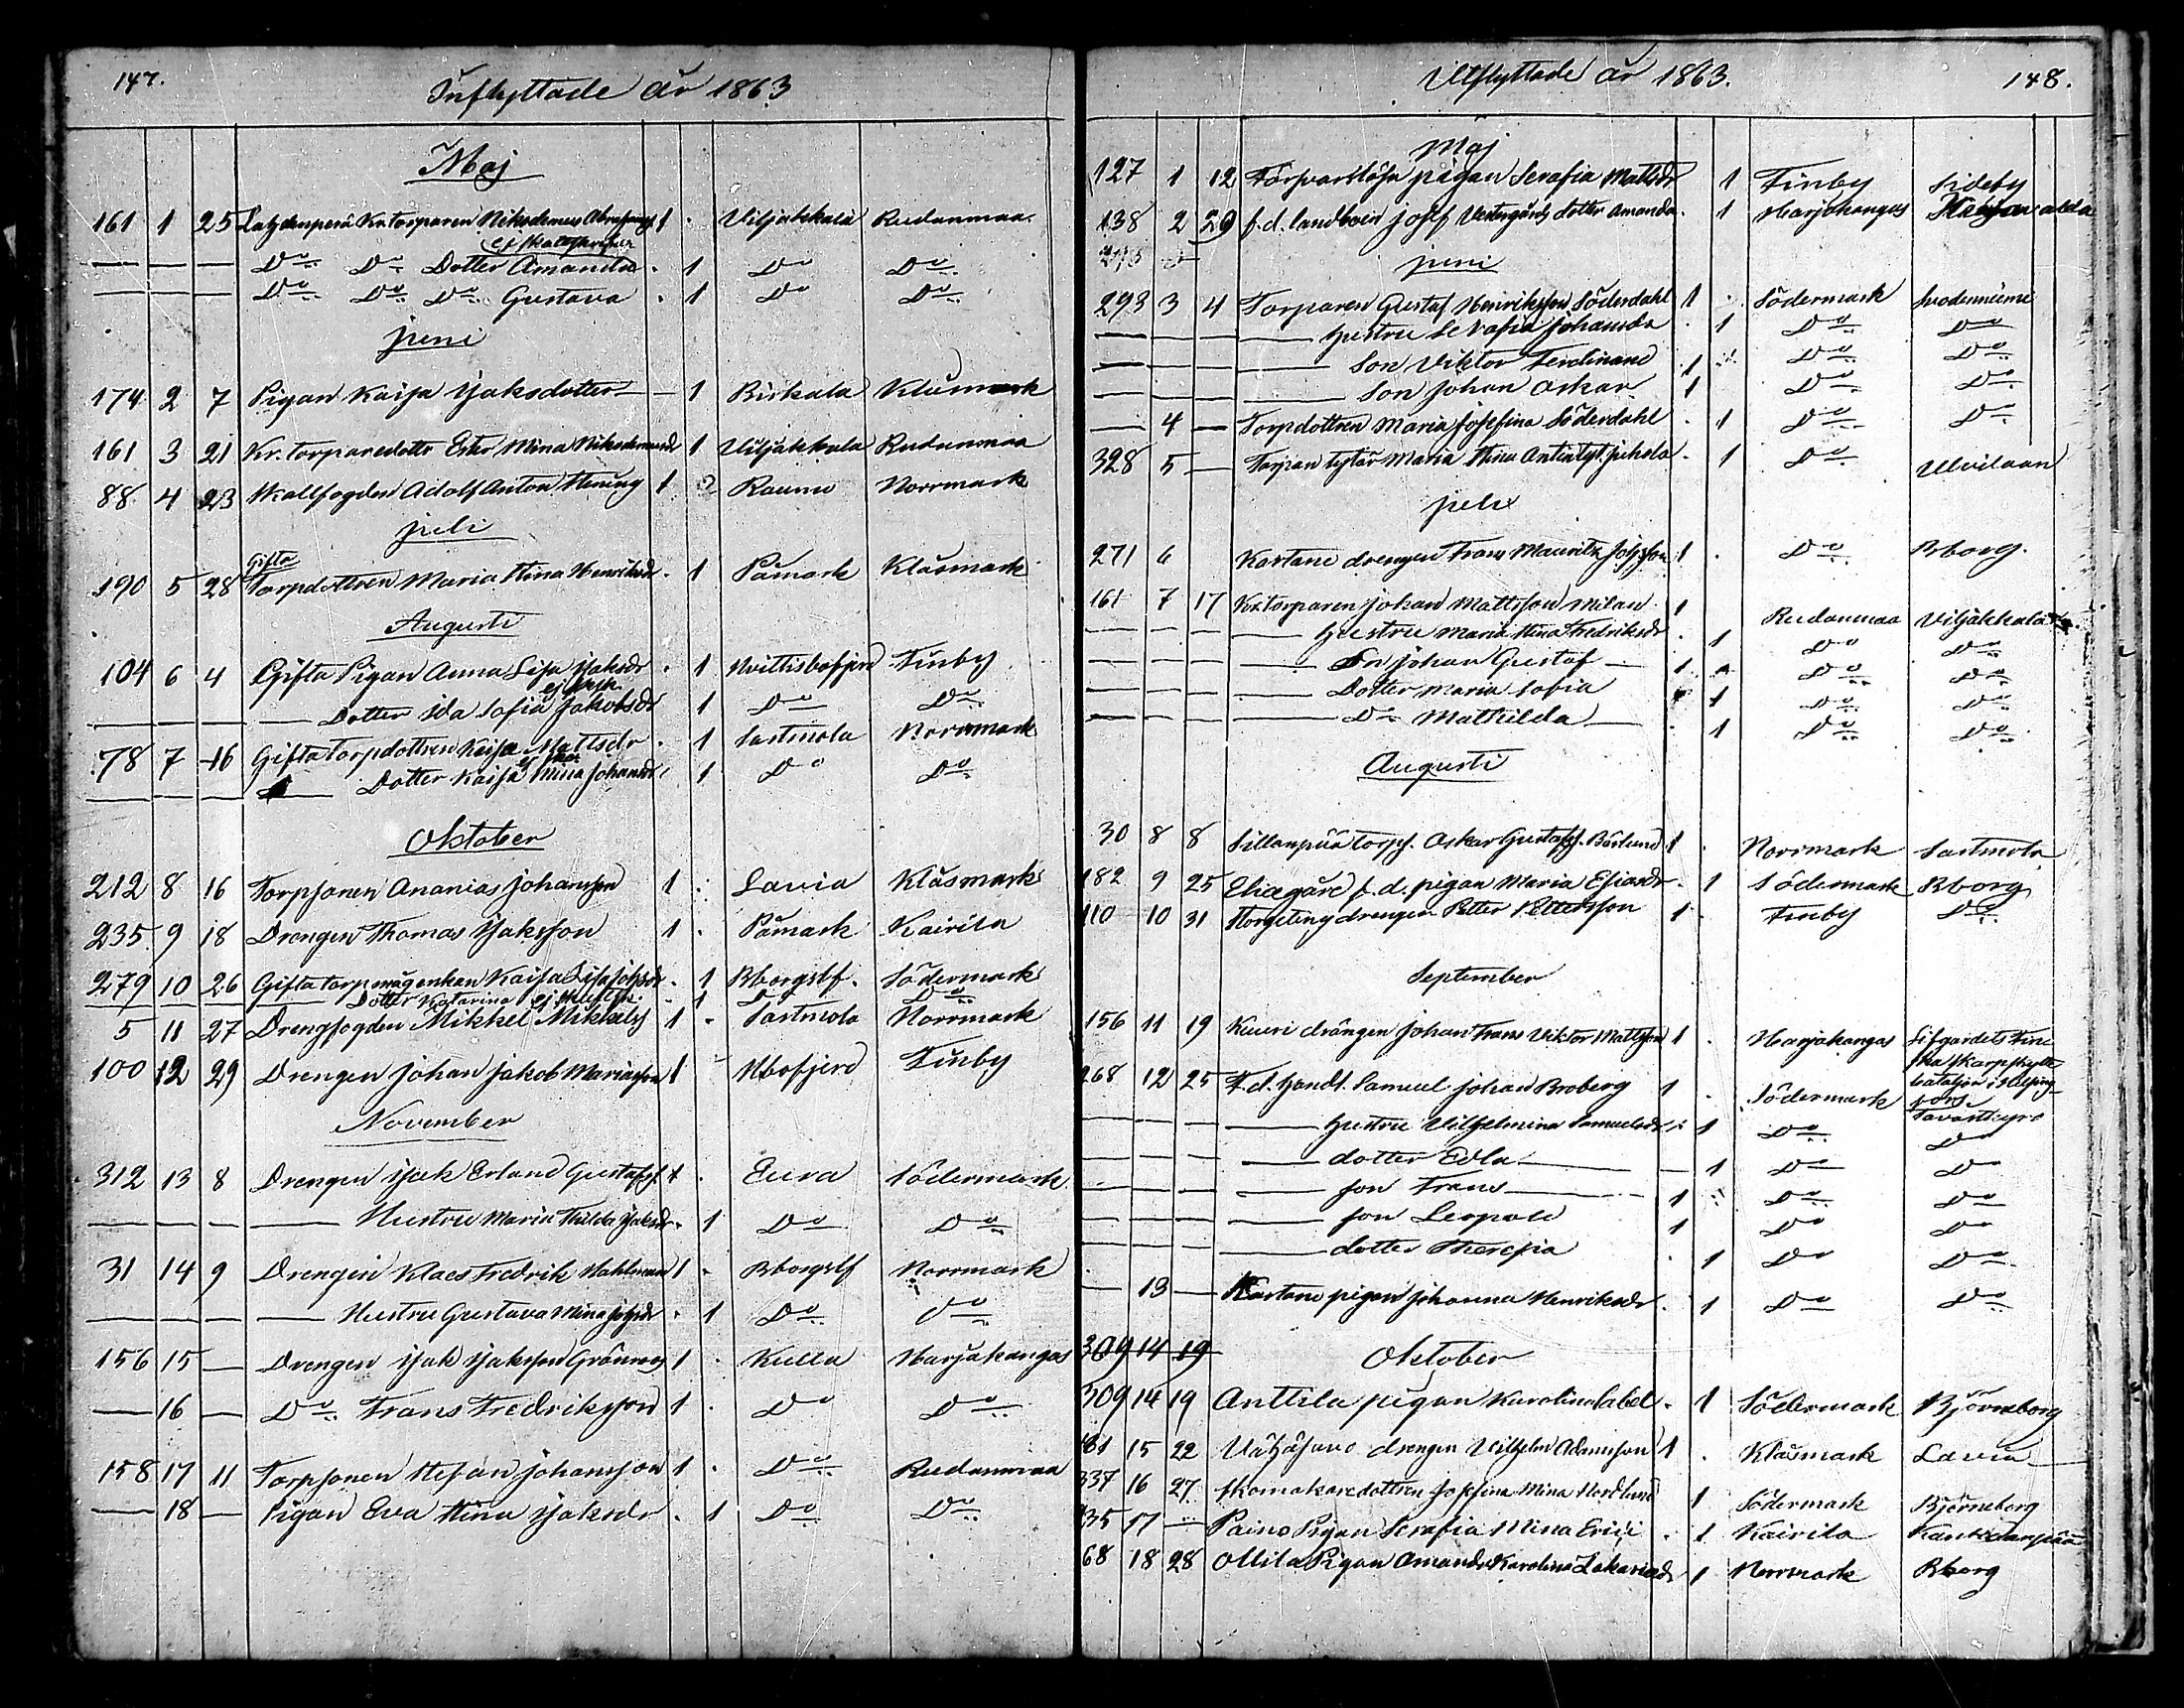 147.
Inflyttade år 1863
Maj
161 1 25 Kr. torparen Nikodemus 1 . Viljakkala Rudanmaa
— — — Do Do Dotter Amanda . 1 Do Do
— — — Do Do Do Gustava . 1 Do Do
juni
174 2 7 Pigan Kaisa Isaksdotter — 1 Birkala Klåsmark
161 3 21 Kr. torparedottr Ester Mina 1 Viljakkala Rudanmaa
88 4 23 Adolf Anton 1 Raumo Norrmark
juli
Gifta
190 5 28 Torpdottren Maria Stina Henriksdr . 1 Påmark Klåsmark
Augusti
104 6 4 Gifta Pigan Anna Lisa Isaksdr . 1 Hvittisbofjerd Finby
— — — Dotter Ida Sofia Jakobsdr 1 Do Do
78 7 16 Gifta Torpdottren Kaisa Mattsdr . 1 Sastmola Norrmark
— — — Dotter Kaisa Mina Johansdr 1 Do Do
Oktober
212 8 16 Torpsonen Ananias Johansson 1 . Lavia Klåsmark
235 9 18 Drengen Thomas Isaksson 1 . Påmark Kairila
279 10 26 Gifta torpmågenkan Kaisa Lisa Johsdr . 1 Bborgslf. Södermark
Dotter Katarina . 1 Do
5 11 27 Drengfogden Mikkel Mikkelss 1 . Sastmola Norrmark
100 12 29 Drengen Johan Jakob Mariasson 1 Hbofjerd Finby
November
312 13 8 Drengen Isak Erland Gustafss. 1 . Eura Södermark
— — — — Hustru Maria Thilda Isaksdr . 1 Do Do
31 14 9 Drengen Klaes Fredrik Hahlman 1 . Bborgslf Norrmark
— — — — Hustru Gustava Mina Johsdr . 1 Do Do
156 15 — Drengen Isak Isaksson Grönroos 1 . Kulla Harjakangas
— 16 — Do Frans Fredriksson 1 . Do Do
158 17 11 Torpsonen Stefan Johansson 1 . Do Rudanmaa
— 18 — Pigan Eva Stina Isaksdr . 1 Do Do
Utflyttade år 1863.
148.
Maj
127 1 12 Försvarslösa pigan Serafia Mattsdr 1 Finby Sideby
138 2 29 f.d. landboen Josef Vestergårds dotter Amanda . 1 Harjakangas
juni
293 3 4 Torparen Gustaf Henriksson Söderdahl 1 . Södermark
— — — Hustru Serafia Johansdr . 1 Do Do
— — — Son Viktor Ferdinand 1 . Do Do
— — — Son Johan Oskar 1 Do Do
— 4 — Torpdottren Maria Josefina Söderdahl . 1 Do Do
328 5 — Torpan tytär Maria Stina Antintyt. Juhola . 1 Do Ulvilaan
juli
271 6 Kartano drengen Frans Mauritz Johsson 1 . Do Bborg.
161 7 17 Kr. torparen Johan Mattsson Milan 1 Rudanmaa Viljakkala
— — — Hustru Maria Stina Fredriksdr . 1 Do Do
— — — Son Johan Gustaf — 1 . Do Do
— — — Dotter Maria Sofia 1 Do Do
— — — Do Mathilda — . 1 Do Do
Augusti
30 8 8 Sillanpää torps. Oskar Gustafss. Bärlund 1 . Norrmark Sastmola
182 9 25 Eliægård f.d. pigan Maria Esiasdr . 1 Södermark Bborg
110 10 31 drengen Petter Pettersson 1 . Finby Do
September
156 11 19 Kuuri drängen Johan Frans Viktor Mattsson 1 . Harjakangas Lifgardets Fin
ska skarpskytte
bataljon i Helsing-
fors.
268 12 25 F.d. handl. Samuel Johan Broberg 1 . Södermark Tavastkyro
— — — Hustru Vilhelmina Samuelsdr . 1 Do Do
— — — dotter Edla — 1 Do Do
— — — son Frans — 1 . Do Do
— — — son Leopold 1 Do Do
— — — dotter Theresia . 1 Do Do
— 13 — Kartano pigan Johanna Henriksdr . 1 Do Do
309 14 19 Oktober
309 14 19 Anttila pigan Karolina Sabel . 1 Södermark Björneborg
181 15 22 drengen Vilhelm Adamsson 1 . Klåsmark Lavia
337 16 27 Skomakaredottren Josefina Mina Nordlund 1 Södermark Björneborg
235 17 — Paino Pigan Serafia Mina Erici . 1 Kairila Kankaanpää
68 18 28 Ollila Pigan Amanda Karolina Zakariasdr 1 Norrmark Bborg